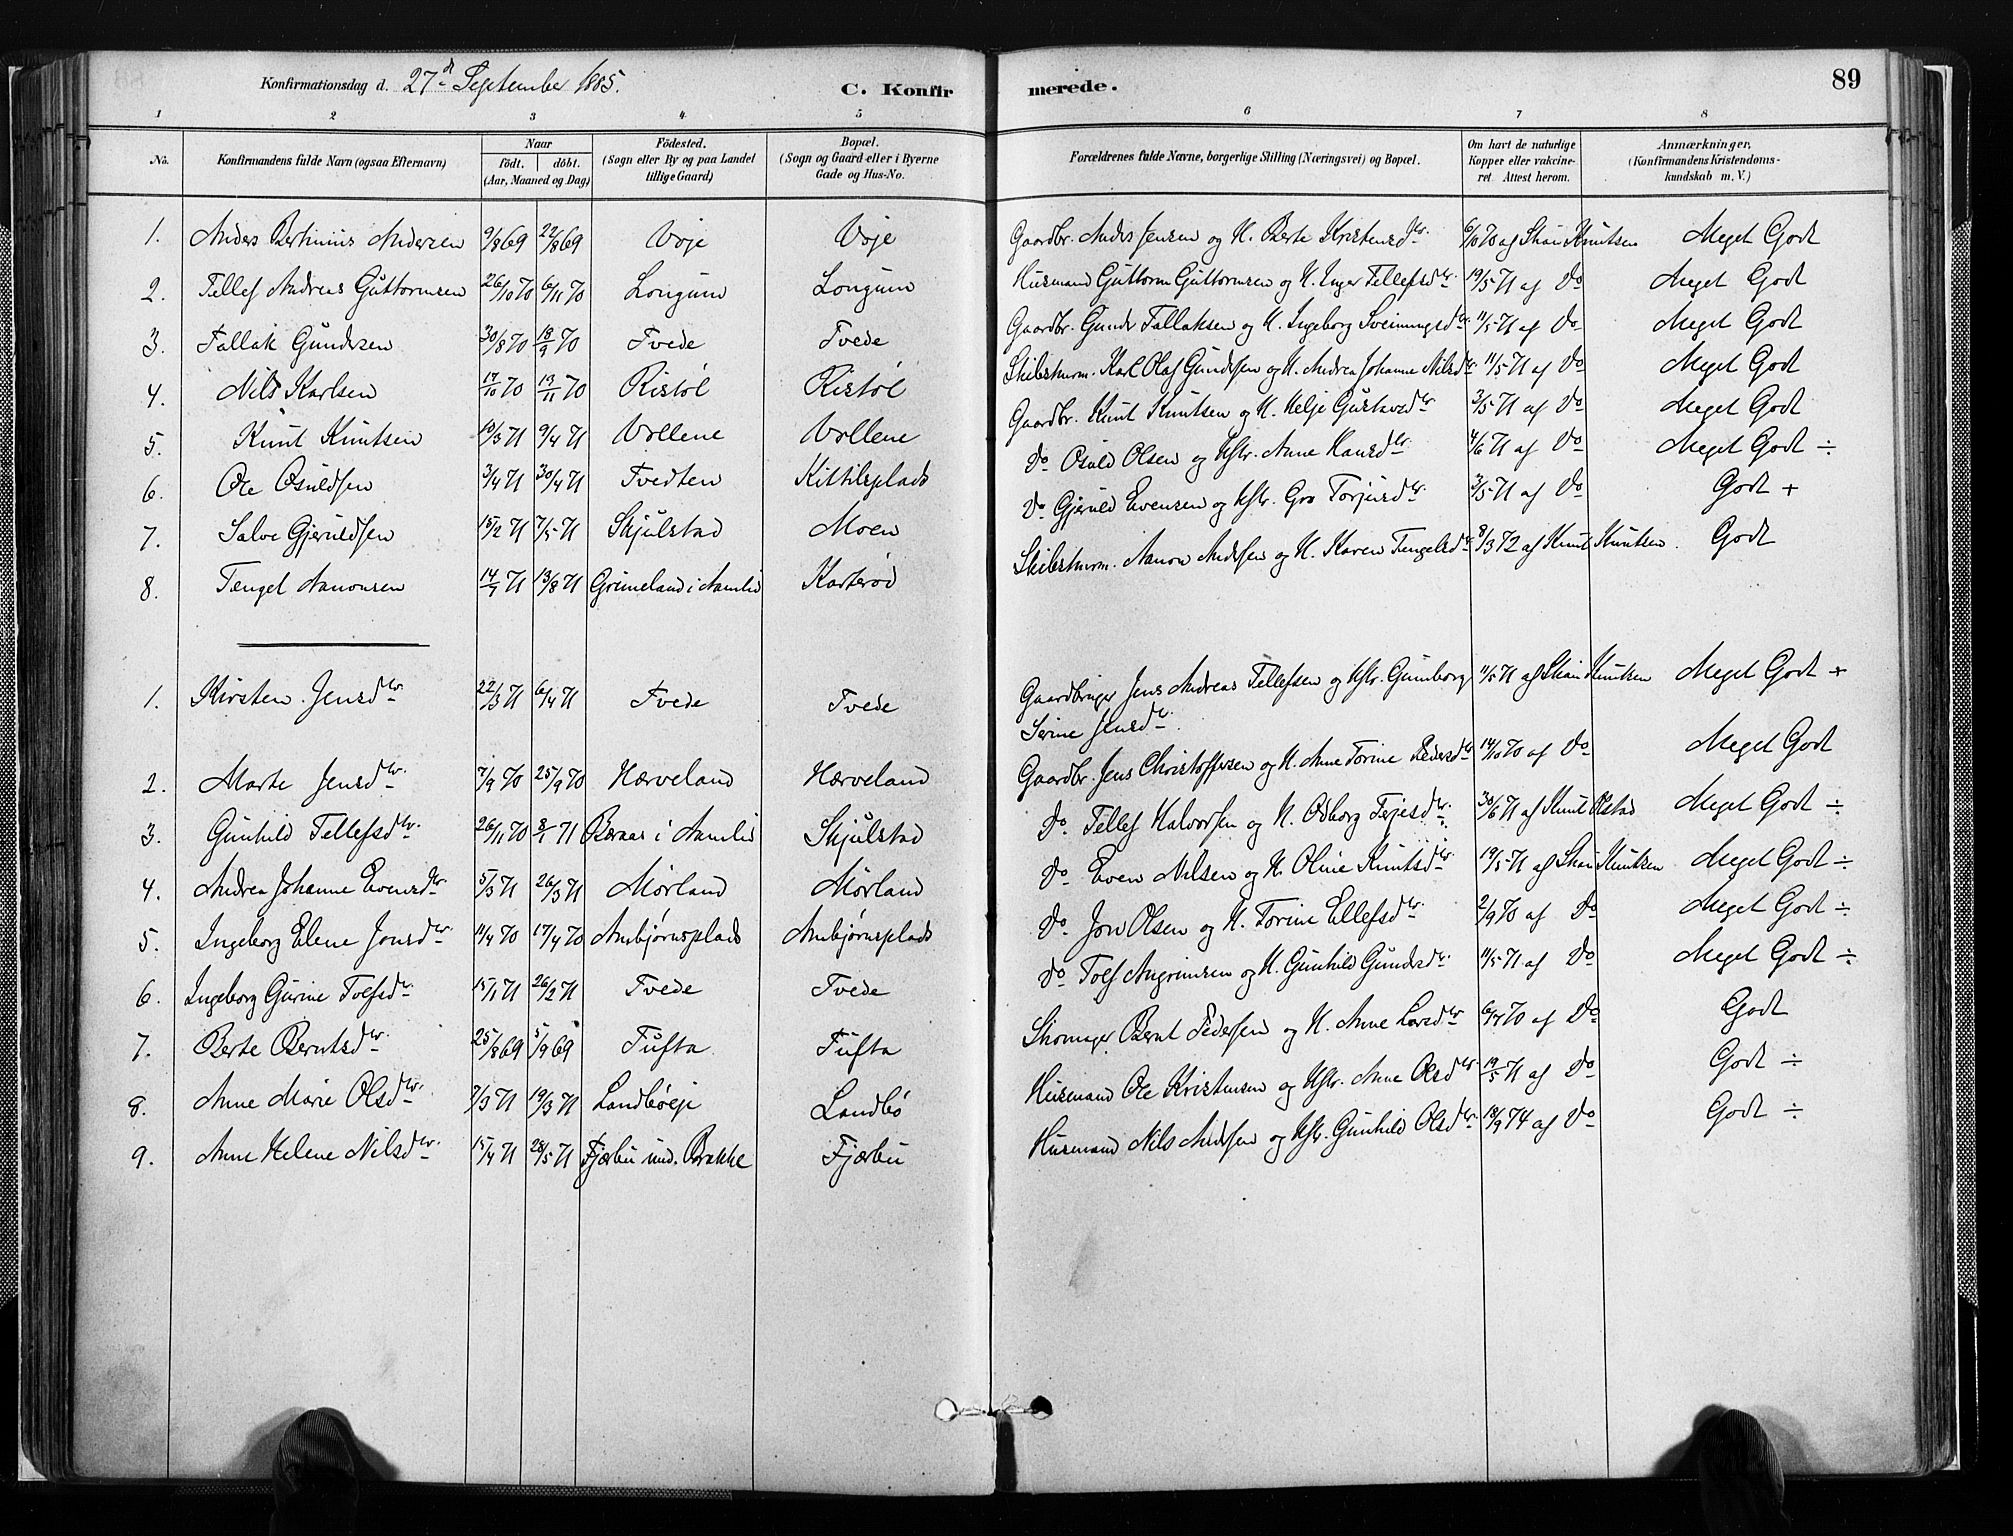 Konfirmationsdag d. 27d September 1885. C. Konfir merede. 89
1 2 3 4 5 6 7 8
No. Konfirmandens fulde Navn (ogsaa Efternavn) Naar født. døbt. (Aar, Maaned og Dag) Fødested. (Sogn eller By og paa Landet tillige Gaard) Bopæl. (Sogn og Gaard eller i Byerne Gade og Hus-No. Forældrenes fulde Navne, borgerlige Stilling (Næringsvei) og Bopæl. Om havt de naturlige Kopper eller vakcineret. Attest herom. Anmærkninger, (Konfirmandens Kristendomskundskab m. V.)
1. Anders Bertinius Andersen 9/8 69 22/8 69 Voje Voje Gaardbr. Anders Jensen og H. Berte Kristensdtr. 6/10 70 af Skau Knutsen Meget Godt
2. Tellef Andreas Guttormsen 26/10 70 6/11 70 Longum Longum Husmand Guttorm Guttormsen og H. Inger Tellefsdtr. 19/5 71 af Do Meget Godt
3. Tallak Gundersen 30/8 70 18/9 70 Tvede Tvede Gaardbr. Gunder Tallaksen og H. Ingeborg Sveinungsdtr. 11/5 71 af Do Meget Godt
4. Nils Karlsen 17/10 70 19/11 70 Ristøl Ristøl Skibstmrm. Karl Olaf Gundersen og H. Andrea Johanne Nilsdtr. 11/5 71 af Do Meget Godt
5. Knut Knutsen 10/3 71 9/4 71 Vollene Vollene Gaardbr. Knut Knutsen og H. Helje Gustavsdtr. 3/5 71 af Do Meget Godt
6. Ole Osuldsen 3/4 71 30/4 71 Tvedten Kittilsplads Do Osuld Olsen og Hstr. Anne Hansdtr. 4/6 71 af Do Meget Godt ÷
7. Salve Gjeruldsen 15/2 71 7/5 71 Skjulstad Moen Do Gjeruld Evensen og Hstr. Gro Torjusdtr. 3/5 71 af Do Godt +
8. Tengel Aanonsen 14/7 71 13/8 71 Grimeland i Aamlid Karterød Skibstmrm. Aanon Andersen og H. Karen Tengelsdtr. 8/3 72 af Knut Knutsen. Godt
1. Kirsten Jensdtr. 22/3 71 6/4 71 Tvede Tvede Gaardbruger Jens Andreas Tellefsen og Hstr. Gunborg 11/5 71 af Skau Knutsen Meget Godt +
Serine Jensdtr.
2. Marte Jensdtr. 7/9 70 25/9 70 Hærveland Hærveland Gaardbr. Jens Christoffersen og H. Anne Torine Pedersdtr. 14/10 70 af Do Meget Godt
3. Gunhild Tellefsdtr. 26/11 70 8/1 71 Beraas i Aamlid Skjulstad Do. Tellef Halvorsen og H. Odborg Terjesdtr. 30/6 71 af Knut Olstad Meget Godt ÷
4. Andrea Johanne Evensdtr. 5/3 71 26/3 71 Mørland Mørland Do Even Nilsen og H. Oline Knutsdtr. 19/5 71 af Skau Knutsen Meget Godt ÷
5. Ingeborg Elene Jonsdtr. 11/4 70 17/4 70 Ambjørnsplads Ambjørnsplads Do Jon Olsen og H. Torine Ellefsdtr. 2/9 70 af Do Meget Godt ÷
6. Ingeborg Gurine Tolfsdtr. 15/1 71 26/2 71 Tvede Tvede Do Tolf Angrimsen og H. Gunhild Gundersdtr. 11/5 71 af Do Meget Godt ÷
7. Berte Berntsdtr. 25/8 69 5/9 69 Tufta Tufta Skomager Bernt Pedersen og H. Anne Larsdtr. 6/7 70 af Do Godt
8. Anne Marie Olsdtr. 7/3 71 19/3 71 Landbøeje Landbø Husmand Ole Kristensen og Hstr. Anne Olsdtr. 19/5 71 af Do Godt ÷
9. Anne Helene Nilsdtr. 15/4 71 28/5 71 Fjærbu und. Brække Fjærbu Husmand Nils Andersen og Hstr. Gunhild Olsdtr. 18/9 74 af Do Godt ÷